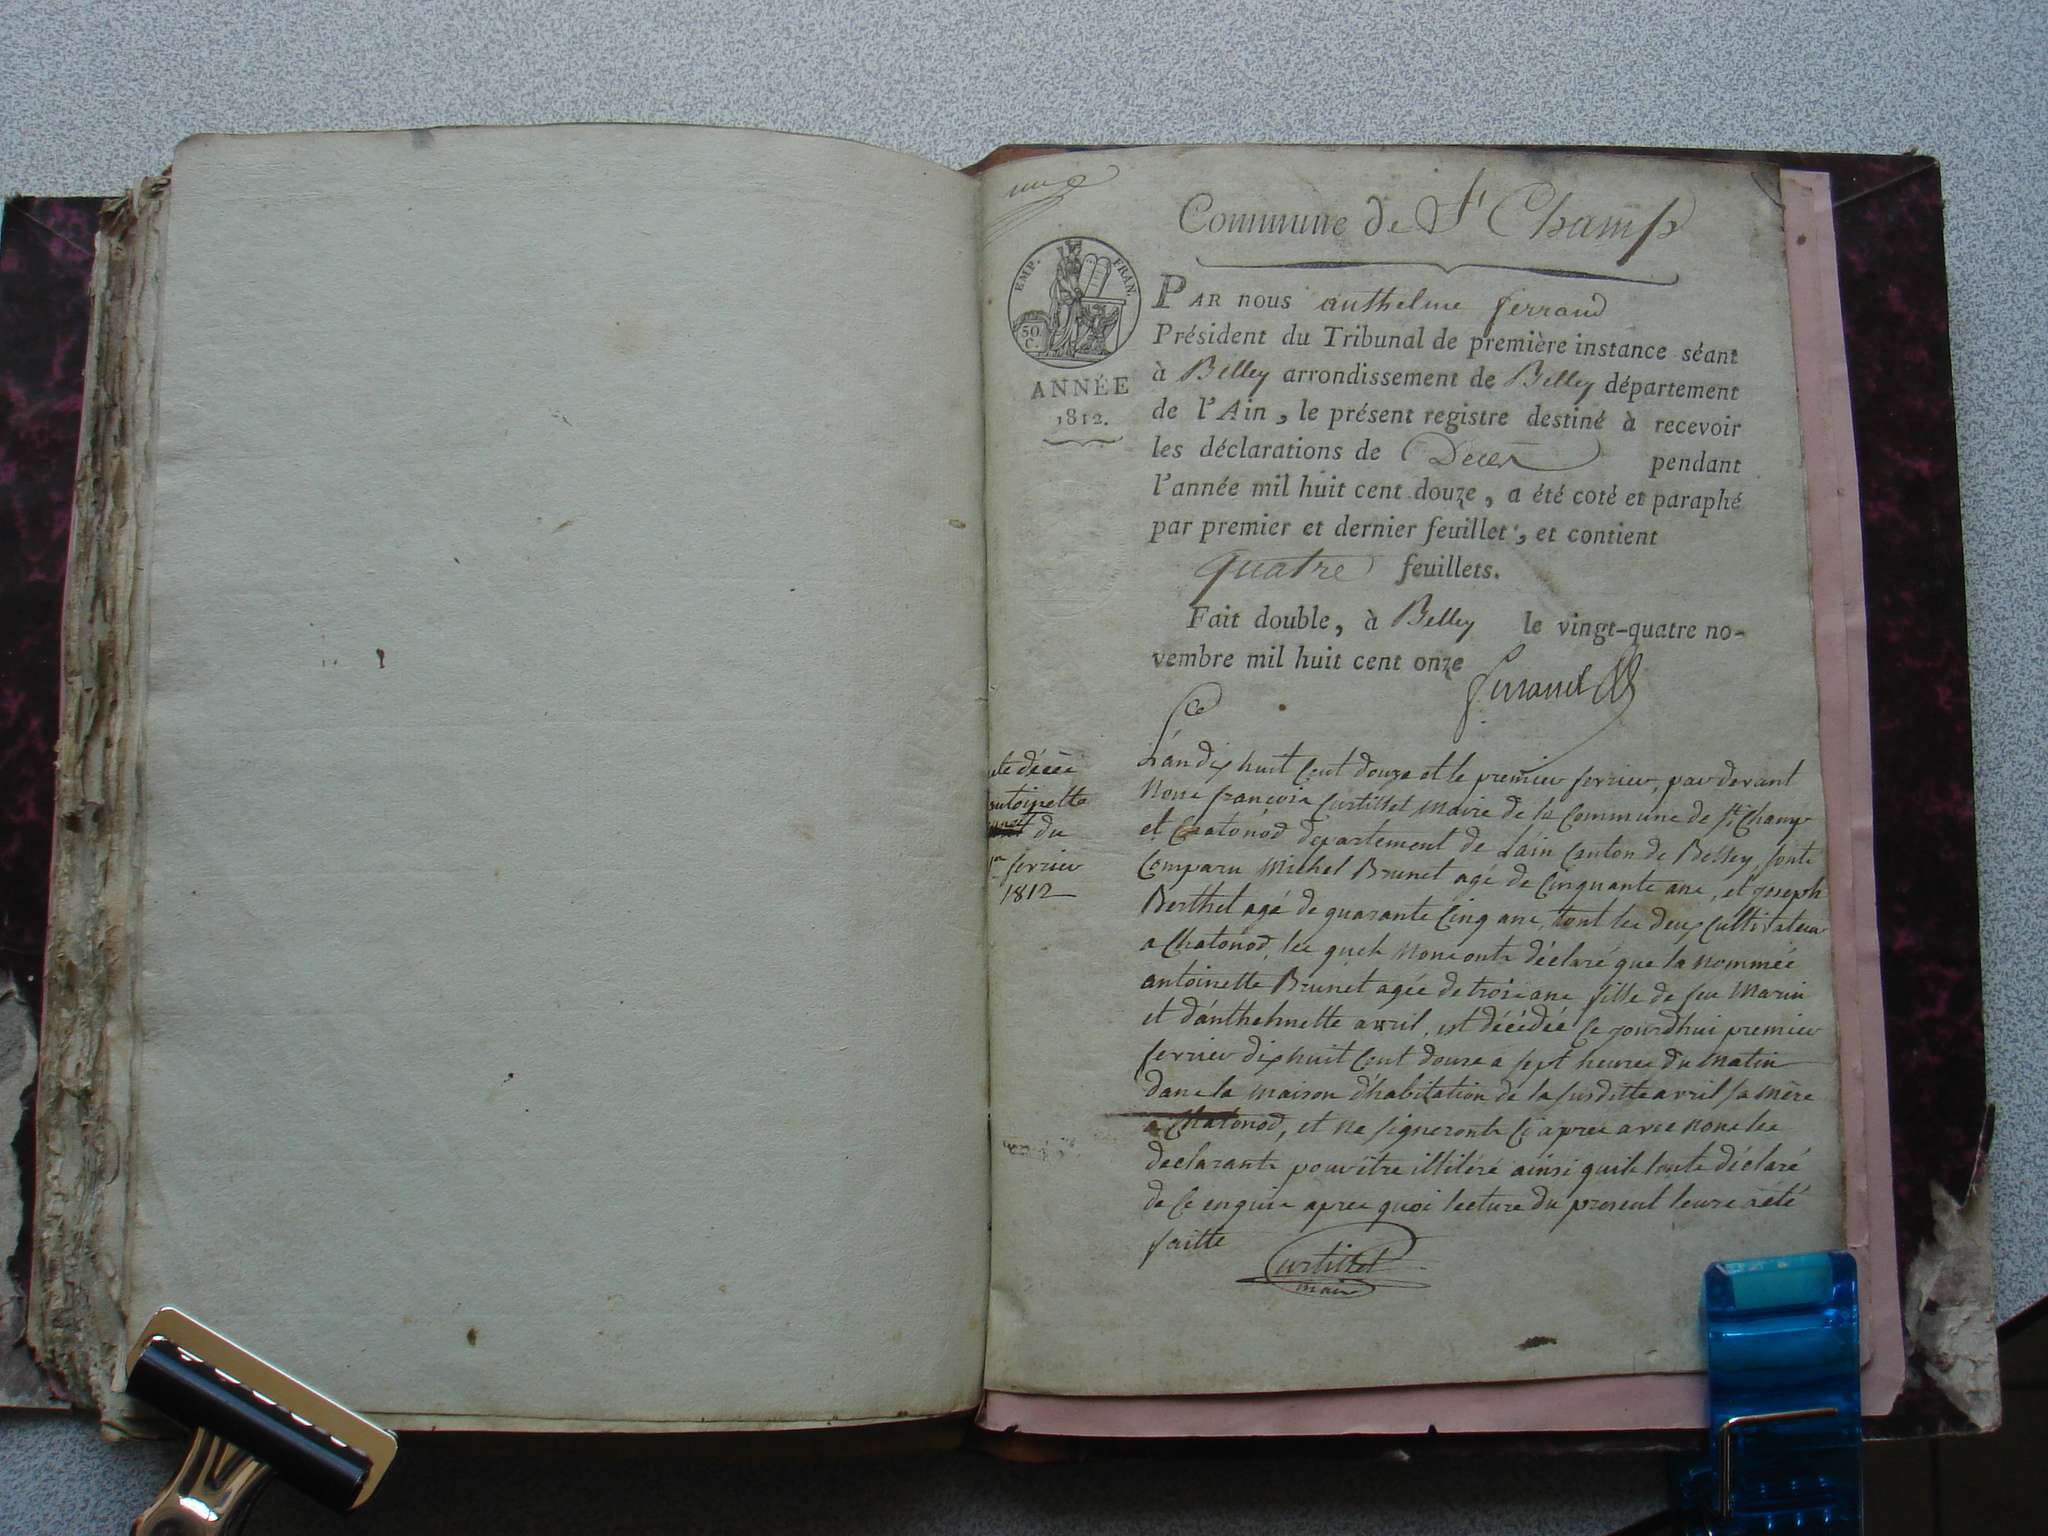 une
Commune de St Champ
EMP. FRAN.
50 C.
ANNÉE
1812.
PAR nous anthelme ferrand
Président du Tribunal de première instance séant
à Belley arrondissement de Belley département
de l'Ain, le présent registre destiné à recevoir
les déclarations de Décès pendant
l'année mil huit cent douze, a été coté et paraphé
par premier et dernier feuillet, et contient
quatre feuillets.
Fait double, à Belley le vingt-quatre no-
vembre mil huit cent onze
ferrand
décès
antoinette
du
fevrier
1812
L'an dix huit Cent douze et le premier fevrier, par devant
Nous françois Curtillet Maire de la Commune de St Champ
et Chatonod departement de Lain Canton de Belley, sont
Comparu Michel Brunet agé de Cinquante ans, et joseph
Berthet agé de quarante Cinq ans, tout les deux Cultivateurs
a Chatonod, les quels Nous onts déclaré que la nommée
antoinette Brunet agée de trois ans fille de feu Marin
et d'anthelmette avril, est décédée Ce jourdhui premier
fevrier dix huit Cent douze a sept heures du Matin
dans la maison d'habitation de la susditte avril sa mère
a Chatonod, et ne signeronts Ci apres avec nous les
declarants pour être illitéré ainsi quils lonts déclaré
de Ce enquis apres quoi lecture du present leurs a été
faitte
Curtillet
maire